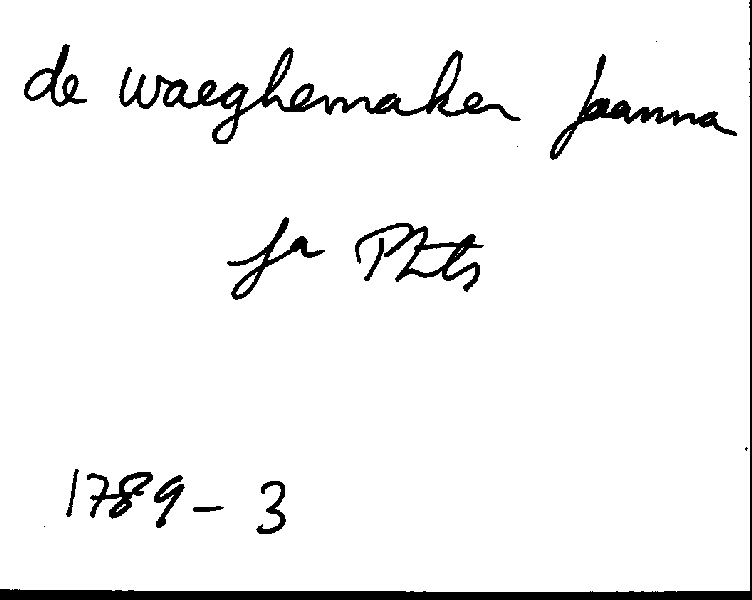 de waeghemaker Joanna
fa
1789 - 3